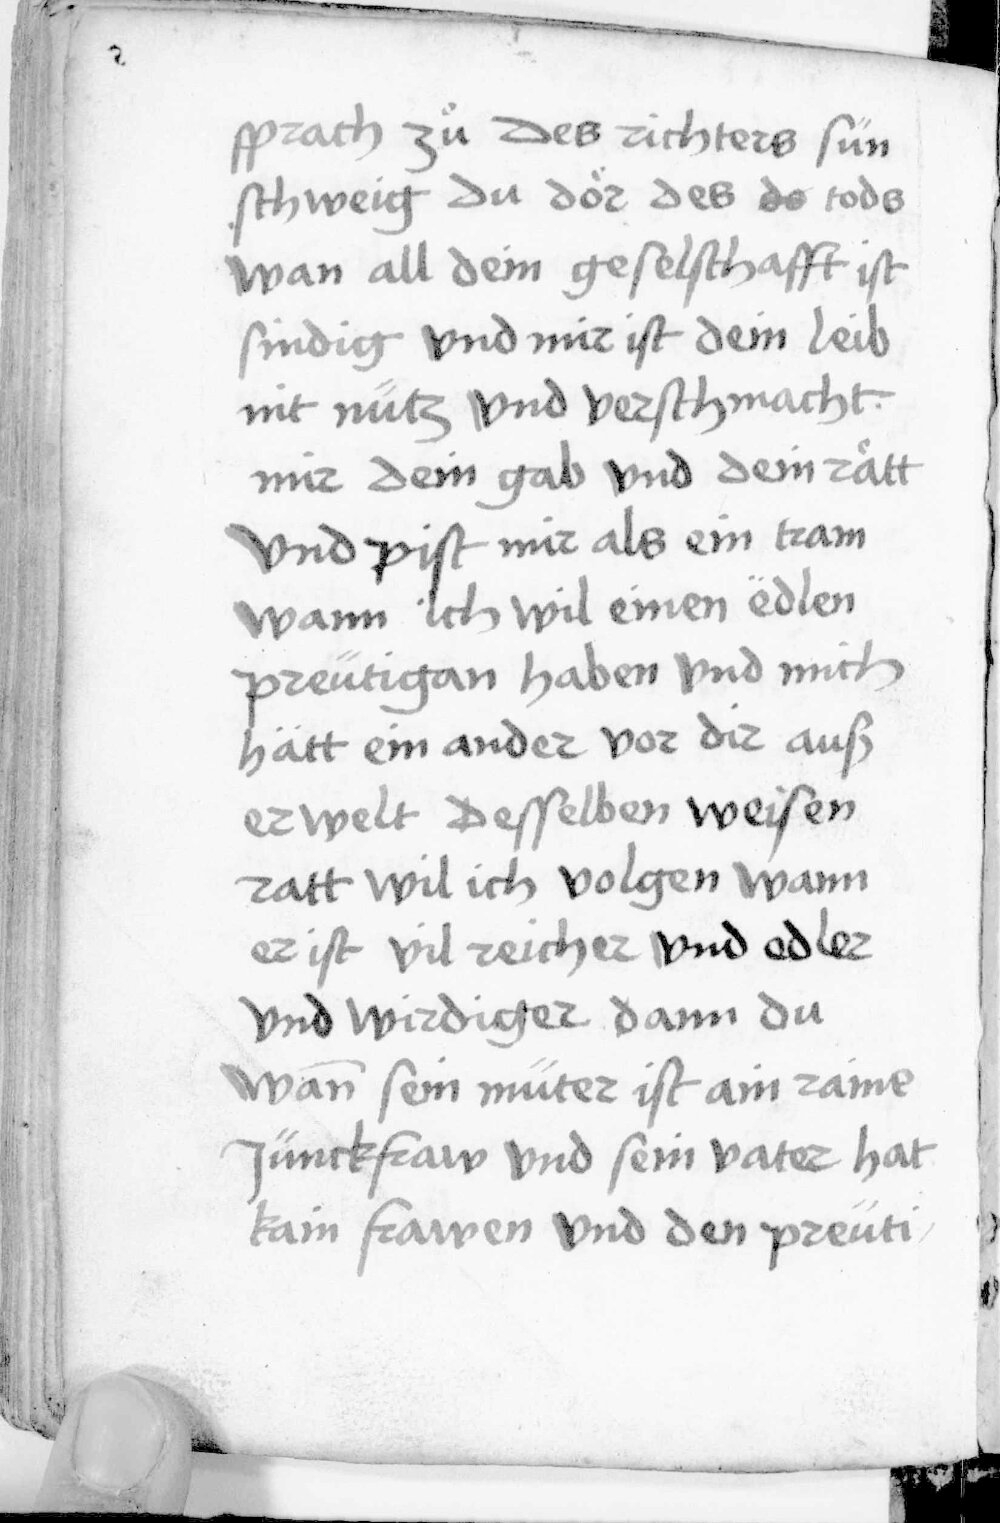 2
sprach zů des richters sün
schweig du dör des do tods
wan all dein geselschafft ist
sindig vnd mir ist dein leib
nit nütz vnd verschmacht
mir dein gab vnd dein rätt
vnd pist mir als ein tram
wann ich wil einen ëdlen
preütigan haben vnd mich
hätt ein ander vor dir auß
erwelt desselben weisen
ratt wil ich volgen wann
er ist vil reicher vnd edler
vnd wirdiger dann du
wan̄ sein müter ist ain raine
Jünckfraw vnd sein vater hat
kain frawen vnd den preüti